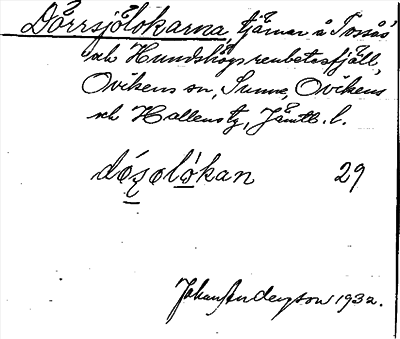 Dörrsjölokarna, tjärnar å Torsås
och Hundshögs renbetesfjäll,
Ovikens sn, Sunne, Ovikens
och Hallens tg, Jämtl. l.
dóʂolókan 29
Johan Anderzson 1932.